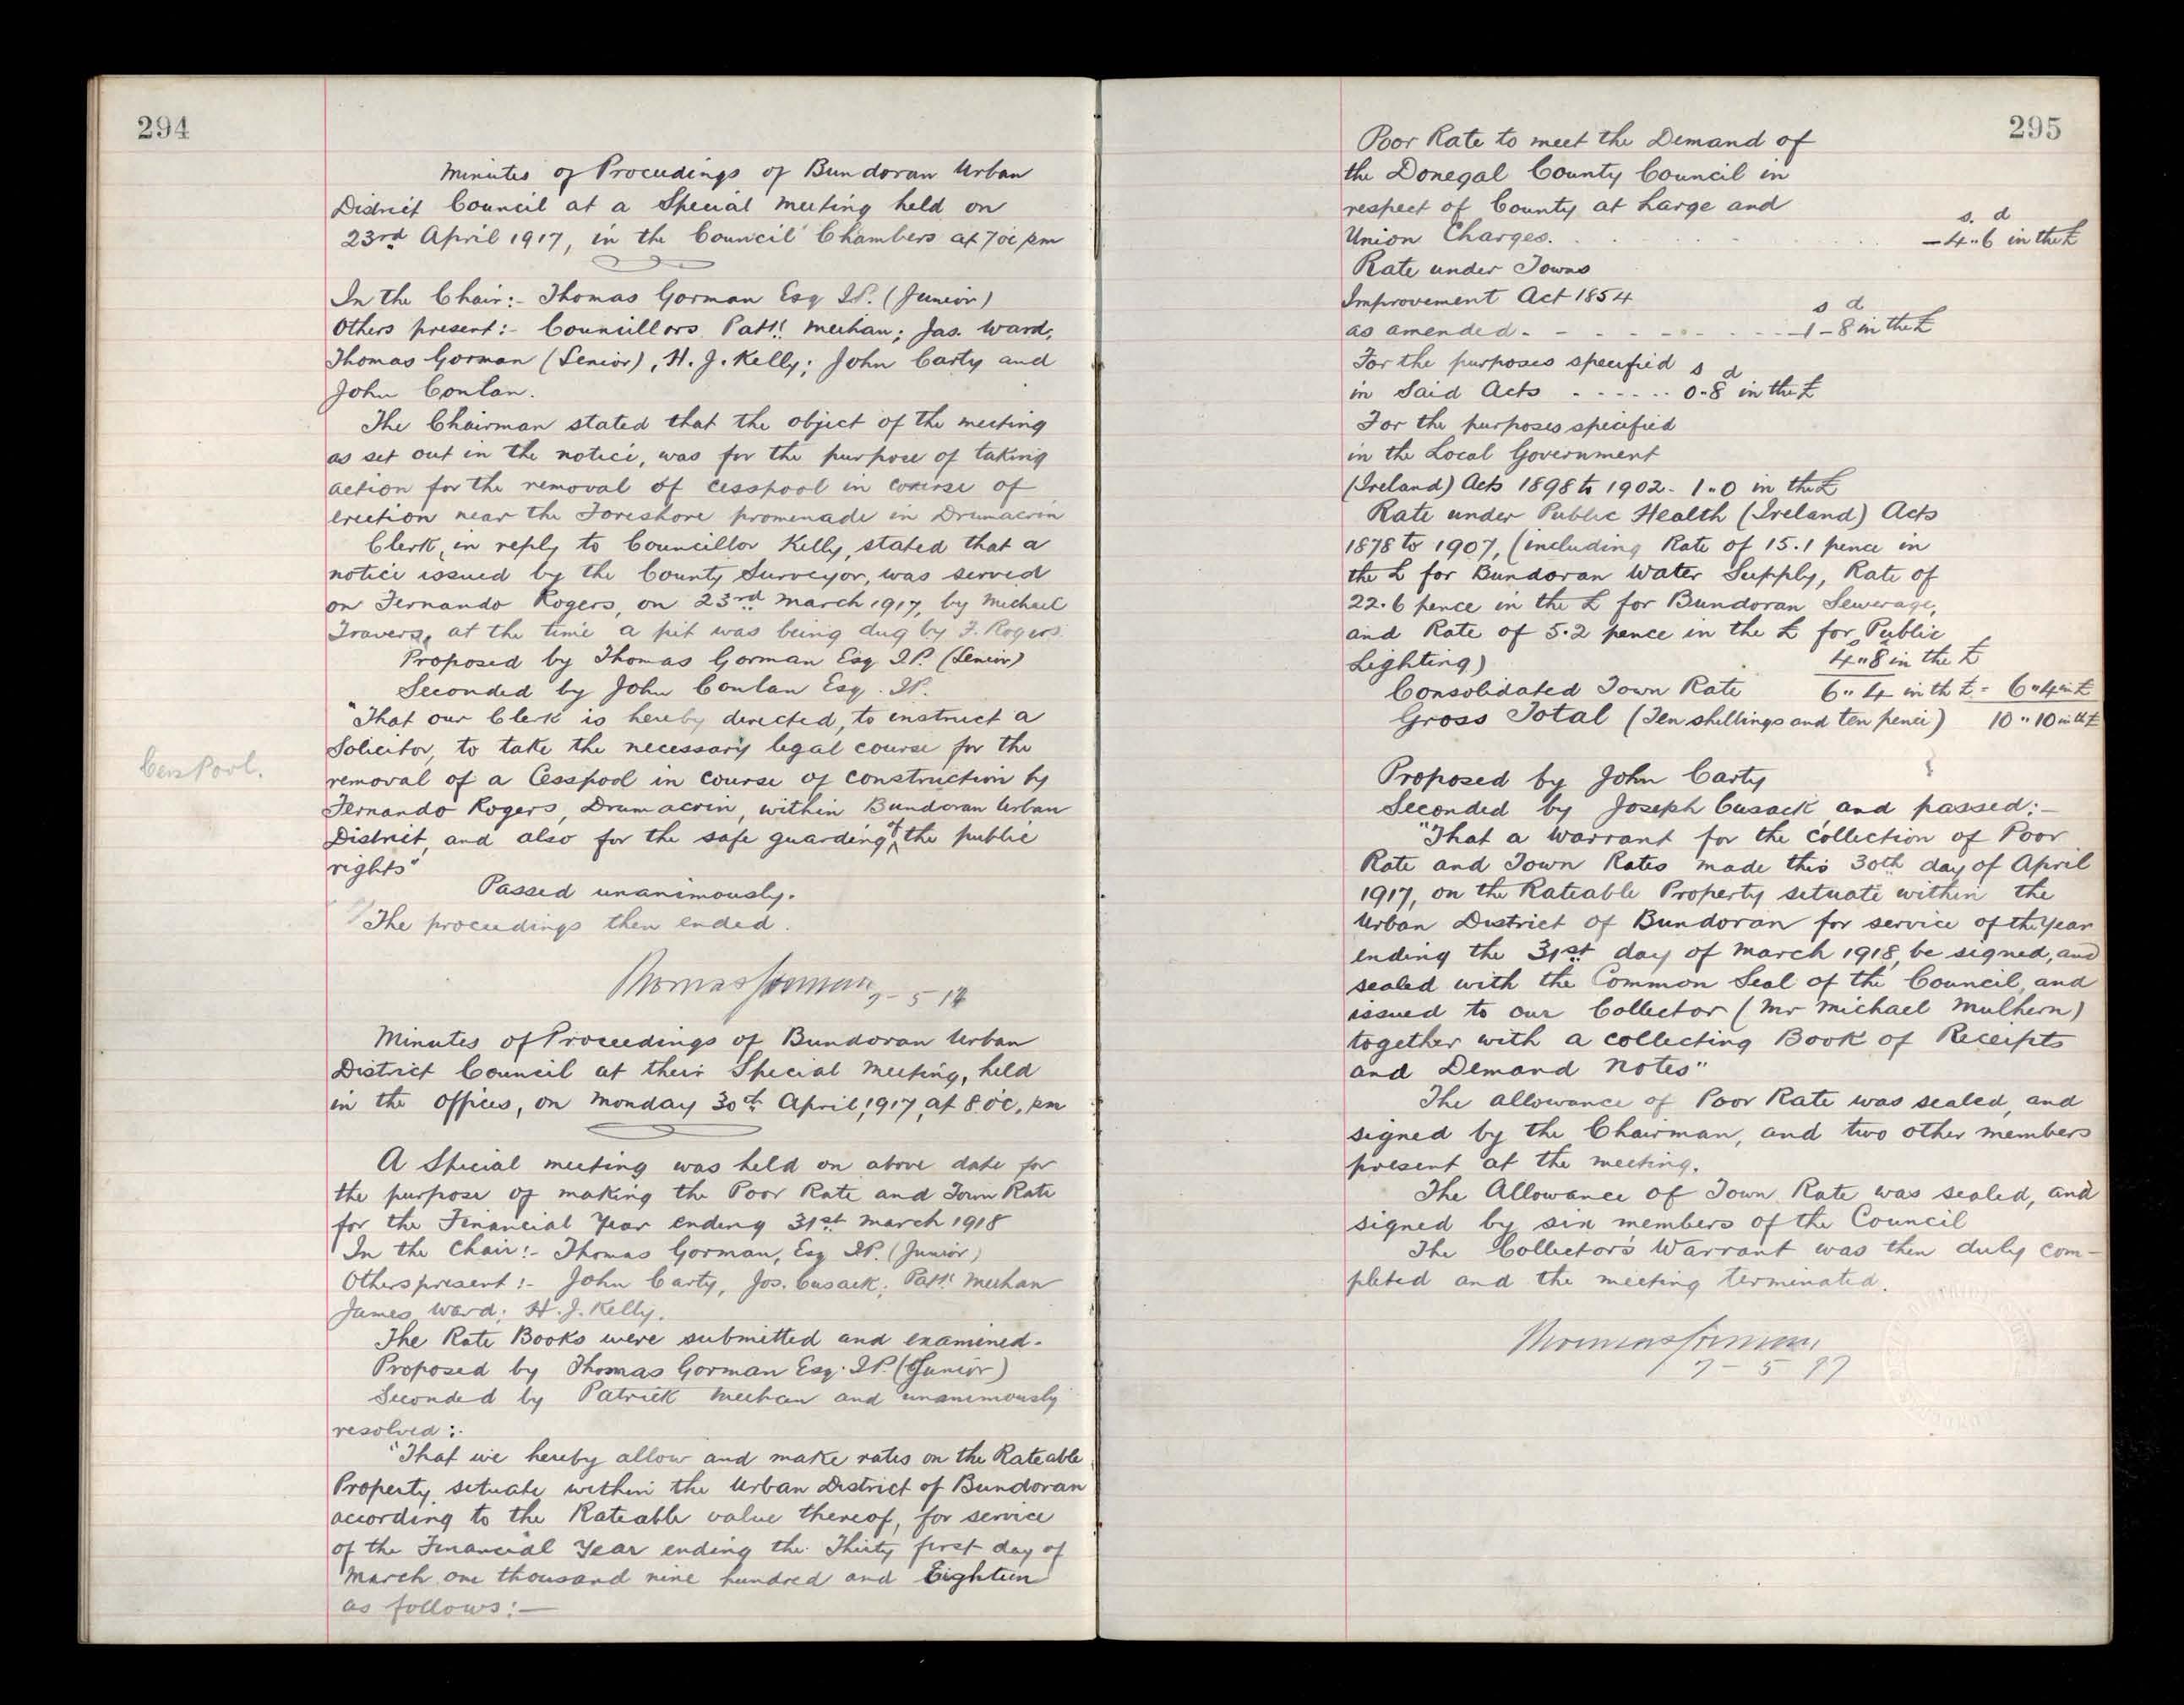 294
Minutes of Proceedings of Bundoran Urban
District Council at a Special Meeting held on
23rd April 1917, in the Council Chambers at 7 oc pm
In the Chair:- Thomas Gorman Esq J.P. (Junior)
Others present:- Councillors Patk Meehan; Jas. Ward;
Thomas Gorman (Senior), H. J. Kelly; John Carty and
John Conlan.
The Chairman stated that the object of the meeting
as set out in the notice, was for the purpose of taking
action for the removal of cesspool in course of
erection near the Foreshore promenade in Drumacrin
Clerk, in reply to Councillor Kelly, stated that a
notice issued by the County Surveyor, was served
on Fernando Rogers, on 23rd March 1917, by Michael
Travers, at the time a pit was being dug by F. Rogers.
Proposed by Thomas Gorman Esq J.P. (Senior)
Seconded by John Conlan Esq. J.P.
"That our Clerk is hereby directed, to instruct a
Solicitor, to take the necessary legal course for the
Cess Pool.
removal of a Cesspool in course of construction by
Fernando Rogers, Drumacrin, within Bundoran Urban
District, and also for the safe guarding of the public
rights"
Passed unanimously.
The proceedings then ended.
Thomas Gorman 7-5 17
Minutes of Proceedings of Bundoran Urban
District Council at their Special Meeting, held
in the offices, on Monday 30th April, 1917, at 8 o'c. pm
A Special meeting was held on above date for
the purpose of making the Poor Rate and Town Rate
for the Financial Year ending 31st March 1918
In the Chair:- Thomas Gorman, Esq J.P. (Junior)
Others present:- John Carty, Jos. Cusack; Patk Meehan
James Ward; H. J. Kelly.
The Rate Books were submitted and examined.
Proposed by Thomas Gorman Esq. J.P. (Junior)
Seconded by Patrick Meehan and unanimously
resolved:-
"That we hereby allow and make rates on the Rateable
Property situate within the Urban District of Bundoran
according to the Rateable value thereof, for service
of the Financial Year ending the Thirty first day of
March one thousand nine hundred and Eighteen
as follows:-
295
Poor Rate to meet the Demand of
the Donegal County Council in
respect of County at Large and
s. d
Union Charges. - 4"6 in the £
Rate under Towns
Improvement Act 1854
s d
as amended. - - - - - - - 1 - 8 in the £
For the purposes specified
s d
in Said Acts ...... 0"8 in the £
For the purposes specified
in the Local Government
(Ireland) Acts 1898 to 1902 - 1"0 in the £
Rate under Public Health (Ireland) Acts
1878 to 1907, (including Rate of 15.1 pence in
the £ for Bundoran Water Supply, Rate of
22.6 pence in the £ for Bundoran Sewerage,
and Rate of 5.2 pence in the £ for Public
Lighting) 4"8 in the £
Consolidated Town Rate 6"4 in th £ = 6"4 in £
Gross Total (Ten shillings and ten pence) 10"10 in th £
Proposed by John Carty
Seconded by Joseph Cusack, and passed:-
"That a Warrant for the collection of Poor
Rate and Town Rates made this 30th day of April
1917, on the Rateable Property situate within the
Urban District of Bundoran for service of the Year
ending the 31st day of March 1918, be signed, and
sealed with the Common Seal of the Council, and
issued to our Collector (Mr Michael Mulhern)
together with a collecting Book of Receipts
and Demand Notes"
The allowance of Poor Rate was sealed, and
signed by the Chairman, and two other members
present at the meeting.
The Allowance of Town Rate was sealed, and
signed by six members of the Council
The Collector's Warrant was then duly com-
pleted and the meeting terminated.
Thomas Gorman
7-5 17